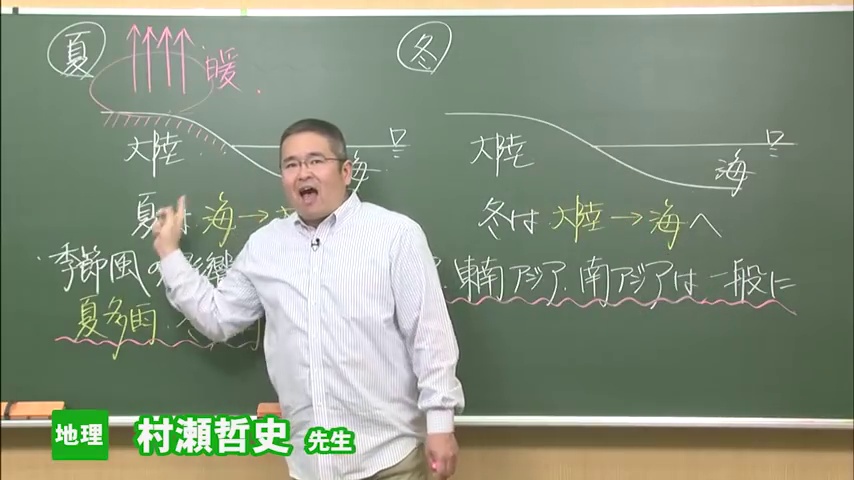 夏
冬
暖
大陸
海
大陸
海
夏は 海→
冬は 大陸→海へ
季節風の影響
東南アジア.南アジアは一般に
夏多雨.
地理 村瀬哲史 先生